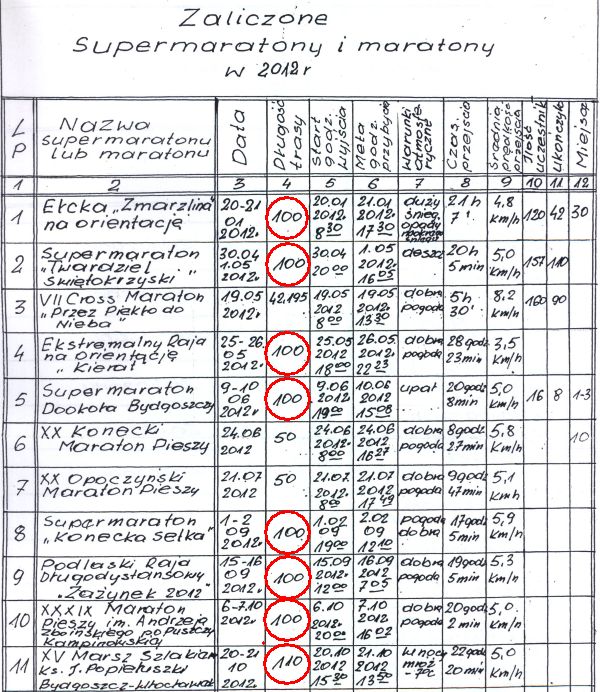 Zaliczone
Supermaratony i maratony
w 2012r
L
P
Nazwa
supermaratonu
lub maratonu
Data
Długość
trasy
Start
godz.
wyjścia
Meta
godz.
przybycia
Warunki
atmosfe-
ryczne
Czas.
przejścia
Średnia
prędkość
przejścia
Ilość
uczestnik
Ukończyło
Miejsce
1 2 3 4 5 6 7 8 9 10 11 12
1
Ełcka „Zmarzlina"
na orientację
20-21
01
2012r.
100
20.01
2012.
8 30
21.01
2012.
17 30
duży
śnieg.
opady
21h
7'
4,8
km/h
120
42
30
2
Supermaraton
„Twardziel
Świętokrzyski"
30.04
1.05
2012r.
100
30.04
20 00
1.05
2012
16 05
deszcz
20h
5min
5,0
km/h
157
110
3
VII Cross Maraton
„Przez Piekło do
Nieba"
19.05
2012r.
42,195
19.05
2012
8 00
19.05
2012.
13 30
dobra
pogoda
5h
30'
8,2
km/h
160
90
4
Ekstremalny Rajd
na orientację
„Kierat"
25-26
05
2012r.
100
25.05
2012
18 00
26.05
2012.
22 23
dobra
pogoda
28godz
23min
3,5
km/h
5
Supermaraton
Dookoła Bydgoszczy
9-10
06
2012r
100
9.06
2012
19 00
10.06
2012
15 08
upał
20godz
8min
5,0
km/h
16
8
1-3
6
XX Konecki
Maraton Pieszy
24.06
2012
50
24.06
2012.
8 00
24.06
2012
16 27
dobra
pogoda
8godz
27min
5,8
km/h
10
7
XX Opoczyński
Maraton Pieszy
21.07
2012
50
21.07.
2012.
8 00
21.07
2012
17 49
dobra
pogoda
9godz
47min
5,1
km/h
8
Supermaraton
„Konecka Setka"
1-2
09
2012r.
100
1.02
09
19 00
2.02
09
12 10
pogoda
dobra
17godz
5min
5,9
km/h
9
Podlaski Rajd
Długodystansowy
„Zażynek 2012"
15-16
09
2012r
100
15.09
2012.
12 00
16.09
2012
7 05
dobra
pogoda
19godz
5min
5,3
km/h
10
XXXIX Maraton
Pieszy im. Andrzeja
Zboińskiego po Puszczy
Kampinoskiej
6-7.10
2012r
100
6.10
2012
20 00
7.10
2012
16 02
dobra
pogoda
20godz
2min
5,0.
km/h
11
XV Marsz Szlakiem
Ks. J. Popiełuszki
Bydgoszcz-Włocławek
20-21
10
2012r.
110
20.10
2012
15 30
21.10
2012
13 50
w nocy
mróz
-7°C
22godz
20min
5,0
km/h